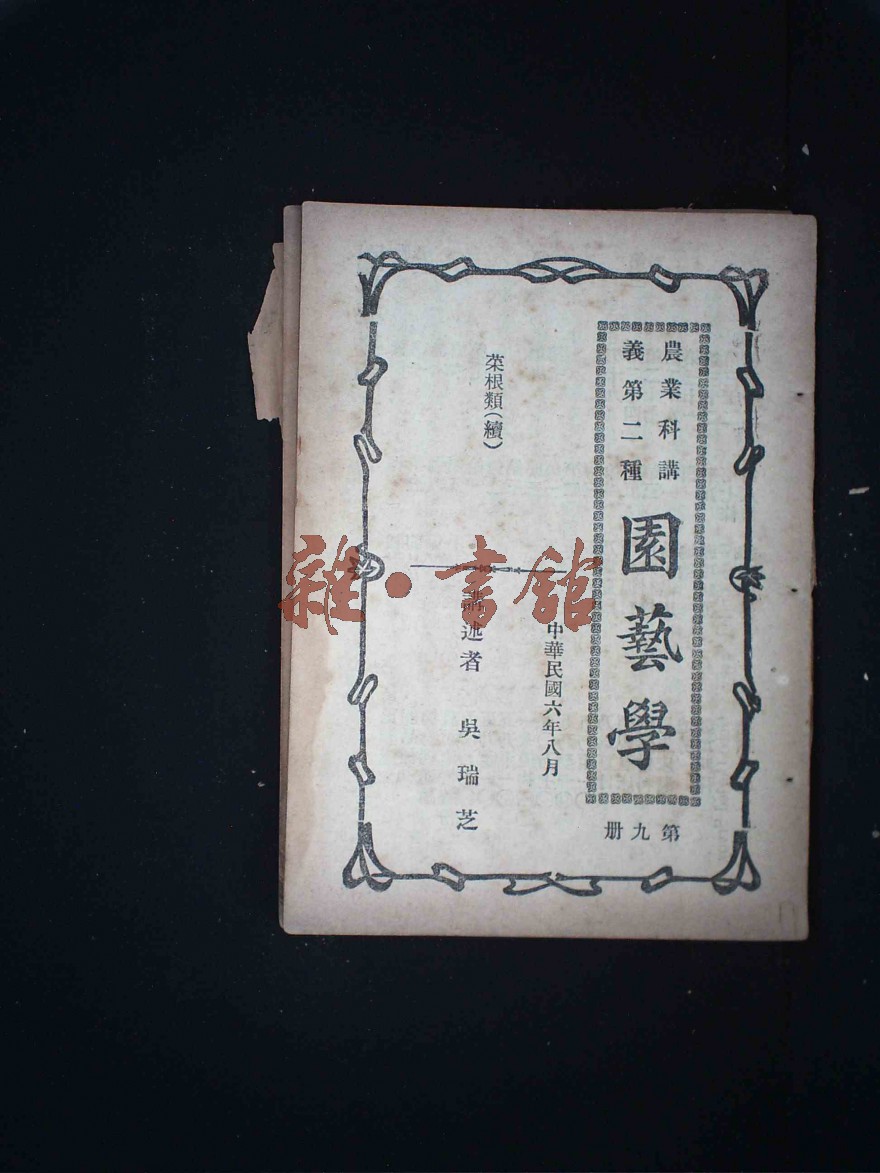 農業科講
義第二種
園藝學
第九册
中華民國六年八月
菜根類(續)
講述者 吳瑞芝
雜·書館